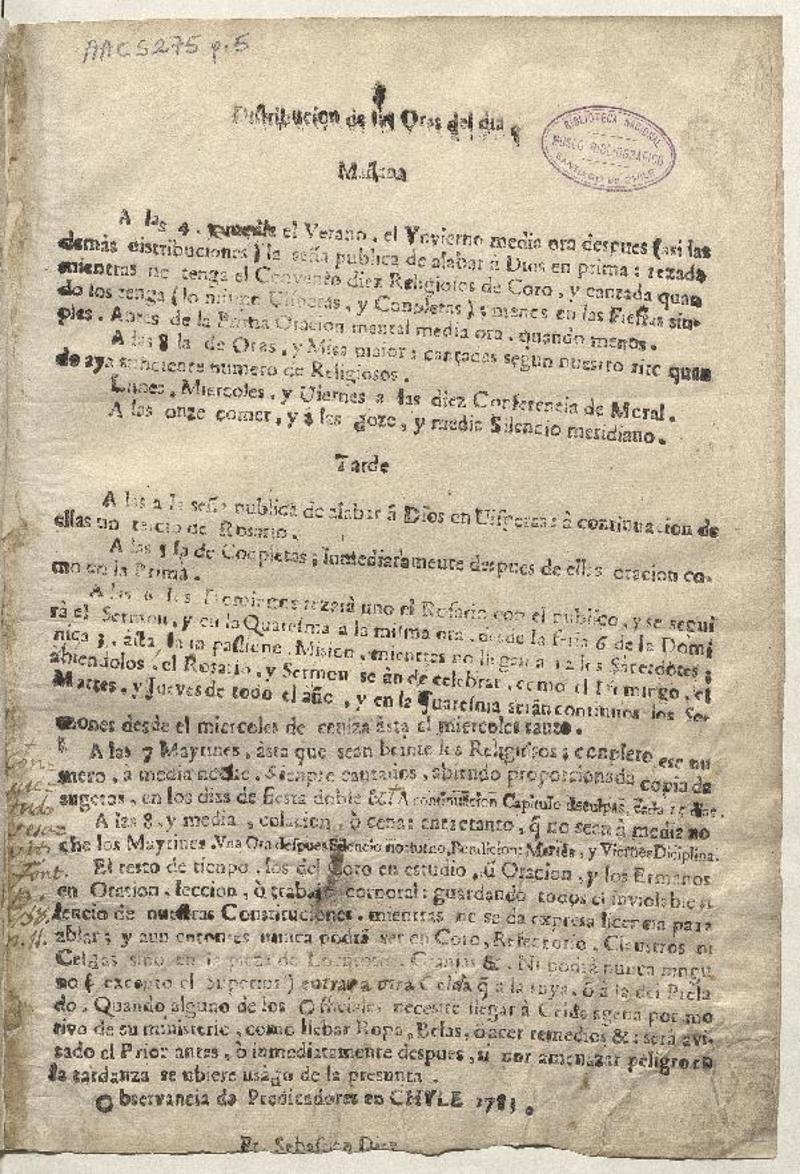 AAC S275 p. 5
Distribucion de las Oras del dia
BIBLIOTECA NACIONAL
MUSEO BIBLIOGRAFICO
SANTIAGO DE CHILE
Mañana
A las 4. el Verano, el Ynvierno media ora despues (asi las
demás distribuciones) la seña publica de alabar â Dios en prima: rezada
mientras no tenga el Convento diez Religiosos de Coro, y cantada quan
do los tenga (lo mismo Uisperas, y Conpletas); menos en las Fiestas sin-
ples. Antes de la Prima Oracion mental media ora, quando menos.
A las 8 la de Oras, y Misa maior: cantadas segun nuestro rite quan
do aya suficiente numero de Religiosos.
Lunes, Miercoles, y Uiernes a las diez Conferencia de Moral.
A las onze comer, y á las doze, y media Silencio meridiano.
Tarde
A las 2 la seña publica de alabar â Dios en Uisperas: à continuacion de
ellas un tercio de Rosario.
A las 5 la de Conpletas; inmediatamente despues de ellas oracion co-
mo en la Prima.
A las 6 los Domingos rezará uno el Rosario con el publico, y se segui
rá el Sermon, y en la Quaresma a la misma ora, desde la feria 6 de la Domi
nica 3, âsta la in pasione, Mision, mientras no llegan a 12 los Sacerdotes;
abiendolos, el Rosario, y Sermon se ân de celebrar, como el Domingo, el
Martes, y Jueves de todo el año, y en la Quaresma serân continuos los Ser
mones desde el miercoles de ceniza âsta el miercoles santo.
A las 7 Maytines, âsta que sean beinte los Religiosos; conpleto ese nu
mero, à media noche. Sienpre cantados, abiendo proporcionada copia de
sugetos, en los dias de fiesta doble &. A continuacion Capitulo de culpas, cada 15 dias.
A las 8, y media, colacion, ò cena: entretanto, q̃ no sean à media no
che los Maytines. Vna Ora despues Silencio nocturno, Bendicion: Martes, y Viernes Diciplina.
El resto de tienpo, los del Coro en estudio, û Oracion, y los Ermanos
en Oracion, leccion, ò trabajo corporal: guardando todos el inviolable si
lencio de nuestras Constituciones, mientras no se da expresa licencia para
ablar; y aun entonces nunca podrá ser en Coro, Refectorio, Claustros ni
Celdas sino en la pieza de &. Ni podrá nunca ningu
no (excepto el Superior) entrar a otra Celda q̃ a la suya, ò â la del Prela
do. Quando alguno de los Oficiales necesite llegar à Celda agena por mo
tivo de su ministerio, como llebar Ropa, Belas, ò acer remedios &: será avi-
sado el Prior antes, ò inmediatamente despues, si por amenazar peligro en
la tardanza se ubiere usado de la presunta.
Observancia de Predicadores en CHYLE 1783.
Fr. Sebastian Diaz
Font.